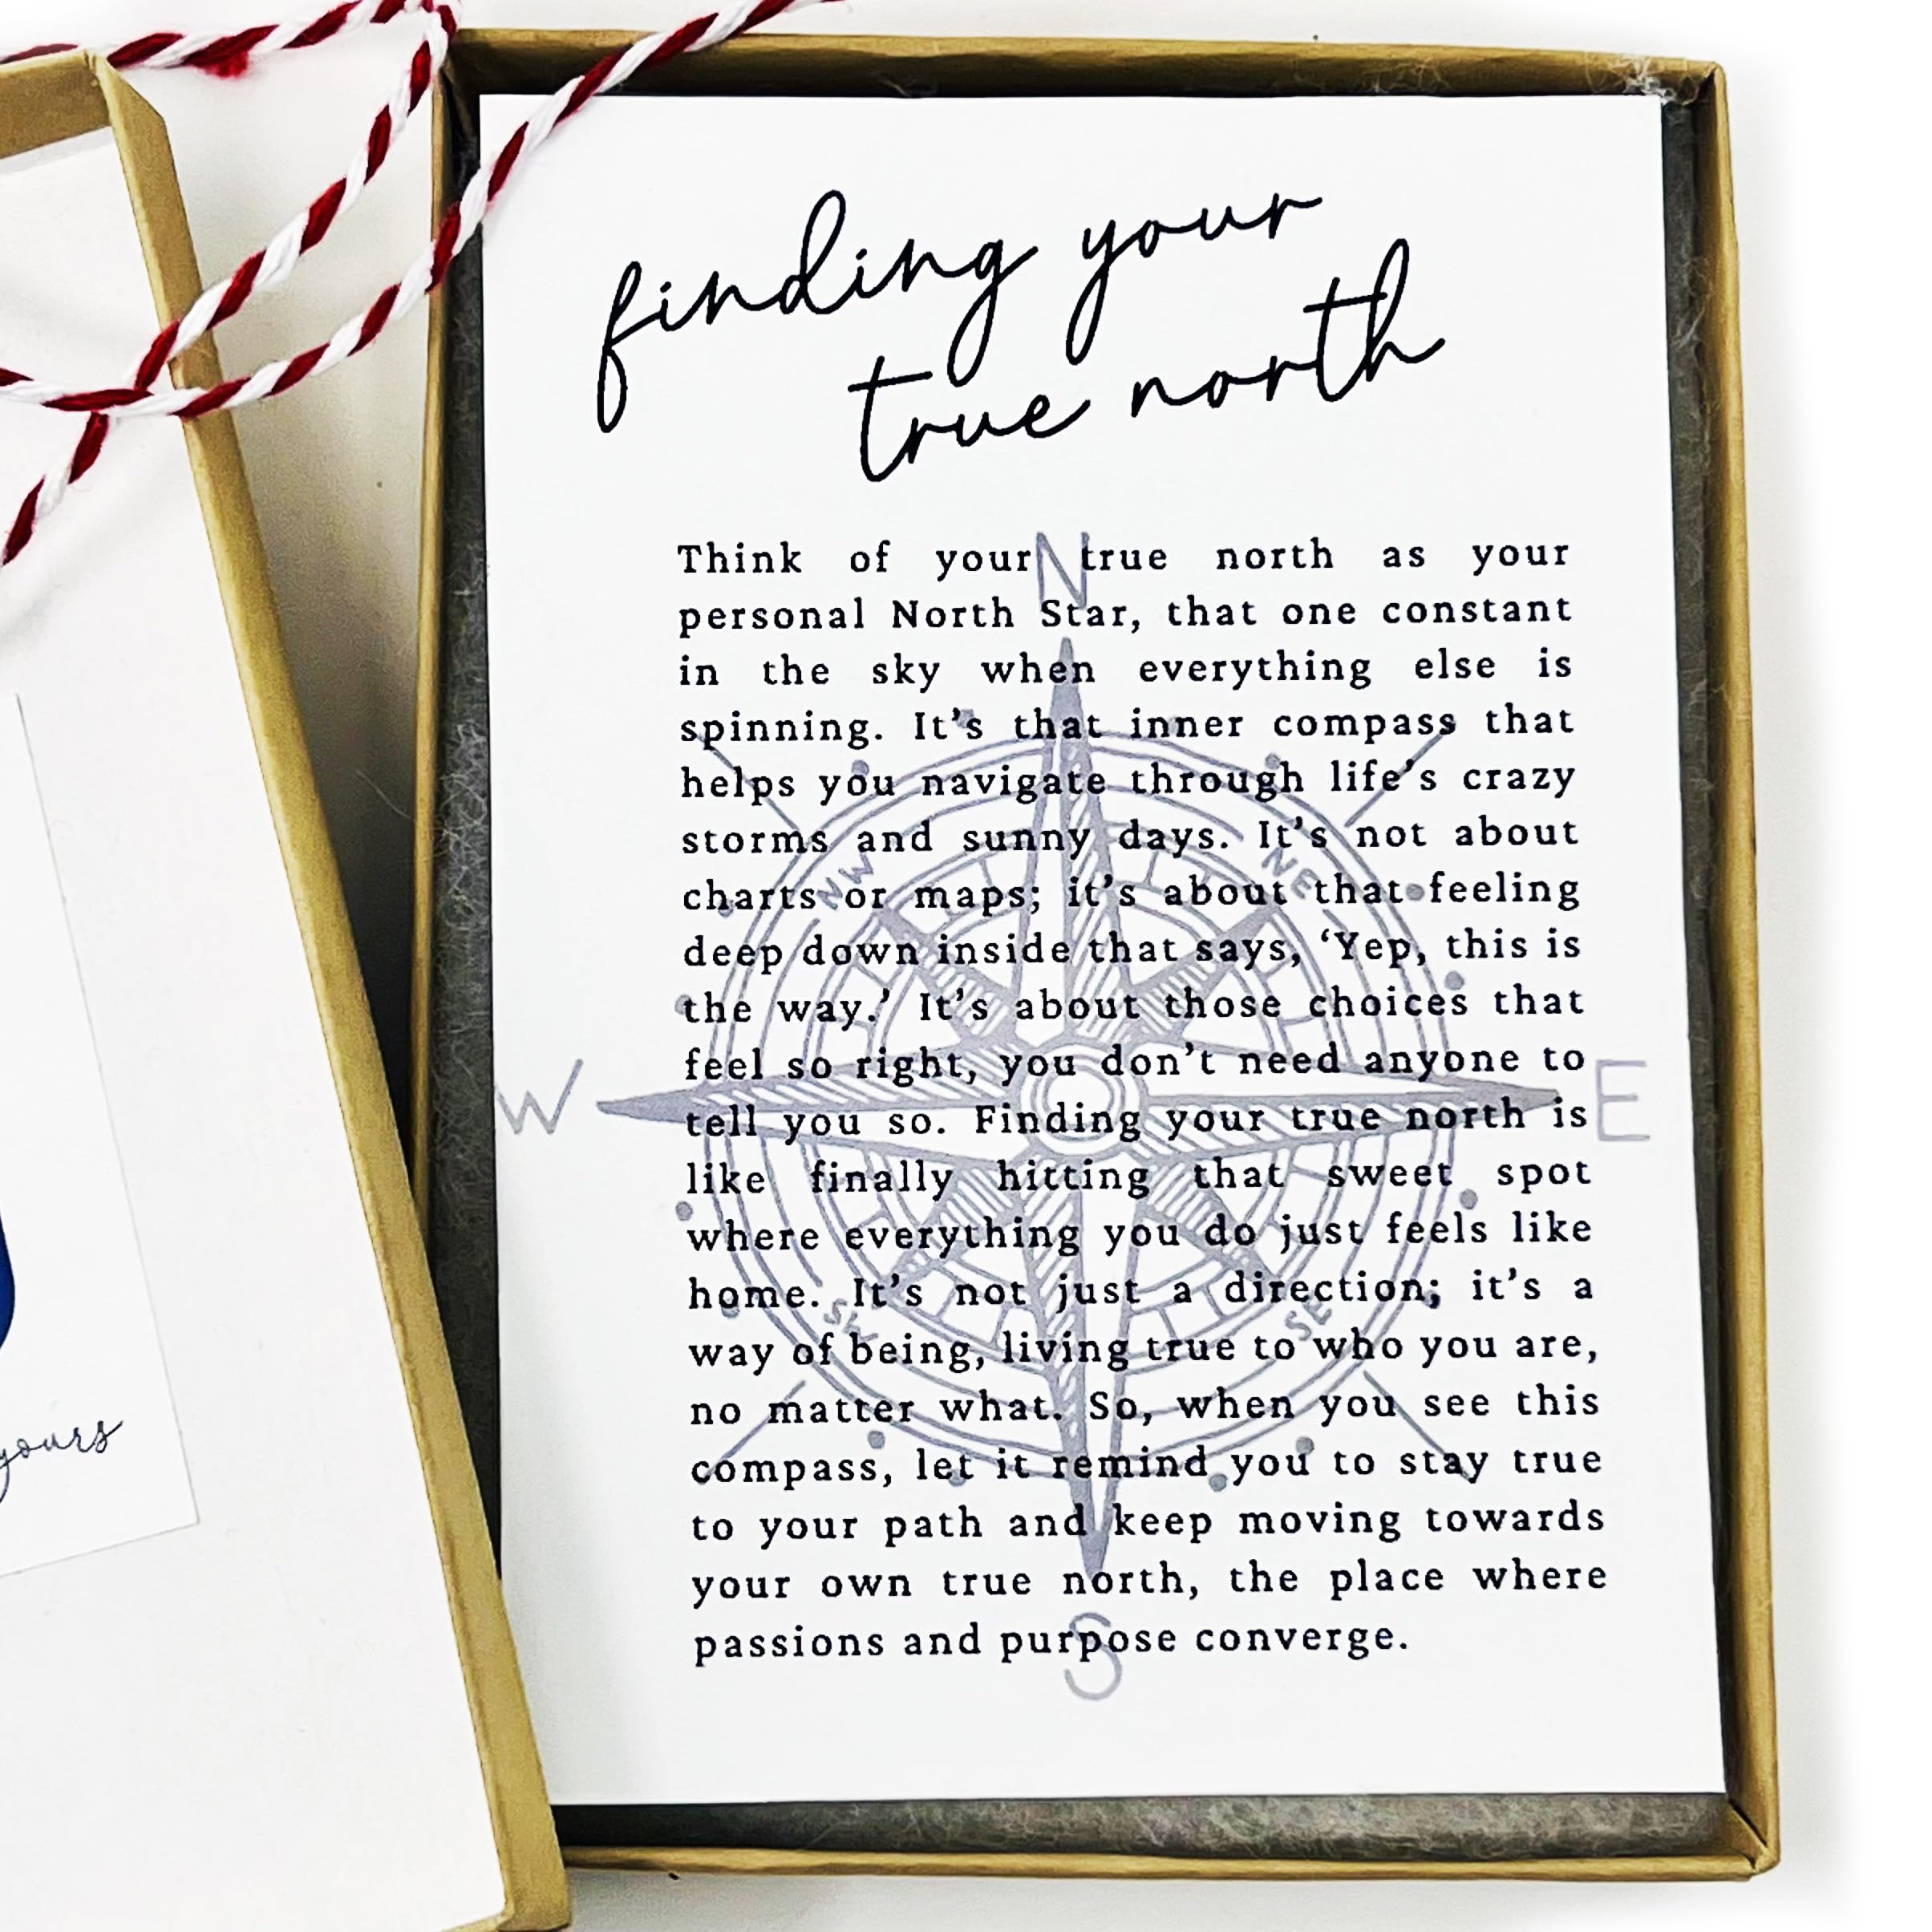 finding your
true north
N
Think of your true north as your
personal North Star, that one constant
in the sky when everything else is
spinning. It's that inner compass that
helps you navigate through life's crazy
storms and sunny days. It's not about
charts or maps; it's about that feeling
deep down inside that says, ‘Yep, this is
the way.’ It's about those choices that
feel so right, you don't need anyone to
tell you so. Finding your true north is
like finally hitting that sweet spot
where everything you do just feels like
home. It's not just a direction; it's a
way of being, living true to who you are,
no matter what. So, when you see this
compass, let it remind you to stay true
to your path and keep moving towards
your own true north, the place where
passions and purpose converge.
NW
NE
W
E
SW
SE
S
yours